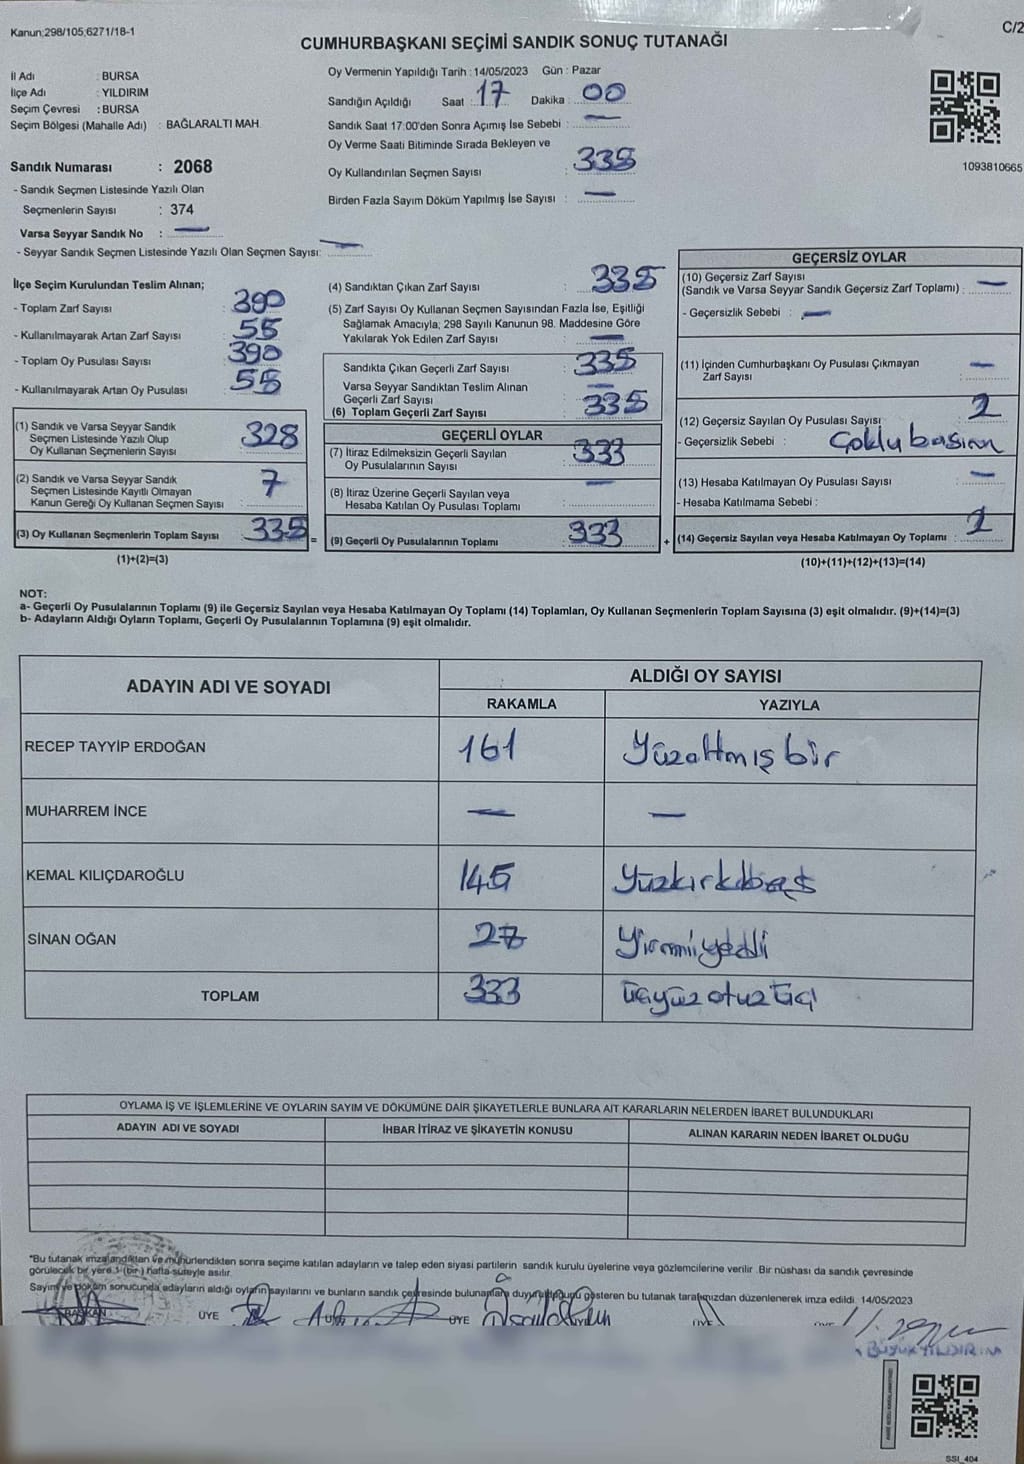 Kanun;298/105;6271/18-1
C/2
CUMHURBAŞKANI SEÇİMİ SANDIK SONUÇ TUTANAĞI
İl Adı : BURSA
İlçe Adı : YILDIRIM
Seçim Çevresi : BURSA
Seçim Bölgesi (Mahalle Adı) : BAĞLARALTI MAH.
Sandık Numarası : 2068
- Sandık Seçmen Listesinde Yazılı Olan
Seçmenlerin Sayısı : 374
Varsa Seyyar Sandık No : —
- Seyyar Sandık Seçmen Listesinde Yazılı Olan Seçmen Sayısı: —
Oy Vermenin Yapıldığı Tarih : 14/05/2023 Gün : Pazar
Sandığın Açıldığı Saat : 17 Dakika : 00
Sandık Saat 17:00'den Sonra Açımış İse Sebebi : —
Oy Verme Saati Bitiminde Sırada Bekleyen ve
Oy Kullandırılan Seçmen Sayısı : 335
Birden Fazla Sayım Döküm Yapılmış İse Sayısı : —
1093810665
İlçe Seçim Kurulundan Teslim Alınan;
- Toplam Zarf Sayısı : 390
- Kullanılmayarak Artan Zarf Sayısı : 55
- Toplam Oy Pusulası Sayısı : 390
- Kullanılmayarak Artan Oy Pusulası : 55
(1) Sandık ve Varsa Seyyar Sandık
Seçmen Listesinde Yazılı Olup
Oy Kullanan Seçmenlerin Sayısı : 328
(2) Sandık ve Varsa Seyyar Sandık
Seçmen Listesinde Kayıtlı Olmayan
Kanun Gereği Oy Kullanan Seçmen Sayısı : 7
(3) Oy Kullanan Seçmenlerin Toplam Sayısı : 335
(1)+(2)=(3)
(4) Sandıktan Çıkan Zarf Sayısı : 335
(5) Zarf Sayısı Oy Kullanan Seçmen Sayısından Fazla İse, Eşitliği
Sağlamak Amacıyla; 298 Sayılı Kanunun 98. Maddesine Göre
Yakılarak Yok Edilen Zarf Sayısı : —
Sandıkta Çıkan Geçerli Zarf Sayısı : 335
Varsa Seyyar Sandıktan Teslim Alınan
Geçerli Zarf Sayısı : —
(6) Toplam Geçerli Zarf Sayısı : 335
GEÇERLİ OYLAR
(7) İtiraz Edilmeksizin Geçerli Sayılan
Oy Pusulalarının Sayısı : 333
(8) İtiraz Üzerine Geçerli Sayılan veya
Hesaba Katılan Oy Pusulası Toplamı : —
= (9) Geçerli Oy Pusulalarının Toplamı : 333
GEÇERSİZ OYLAR
(10) Geçersiz Zarf Sayısı
(Sandık ve Varsa Seyyar Sandık Geçersiz Zarf Toplamı) : —
- Geçersizlik Sebebi : —
(11) İçinden Cumhurbaşkanı Oy Pusulası Çıkmayan
Zarf Sayısı : —
(12) Geçersiz Sayılan Oy Pusulası Sayısı : 2
- Geçersizlik Sebebi : Çoklu basım
(13) Hesaba Katılmayan Oy Pusulası Sayısı : —
- Hesaba Katılmama Sebebi :
+ (14) Geçersiz Sayılan veya Hesaba Katılmayan Oy Toplamı : 2
(10)+(11)+(12)+(13)=(14)
NOT:
a- Geçerli Oy Pusulalarının Toplamı (9) ile Geçersiz Sayılan veya Hesaba Katılmayan Oy Toplamı (14) Toplamları, Oy Kullanan Seçmenlerin Toplam Sayısına (3) eşit olmalıdır. (9)+(14)=(3)
b- Adayların Aldığı Oyların Toplamı, Geçerli Oy Pusulalarının Toplamına (9) eşit olmalıdır.
ADAYIN ADI VE SOYADI ALDIĞI OY SAYISI
RAKAMLA YAZIYLA
RECEP TAYYİP ERDOĞAN 161 Yüzaltmış bir
MUHARREM İNCE — —
KEMAL KILIÇDAROĞLU 145 Yüzkırkbeş
SİNAN OĞAN 27 Yirmiyedi
TOPLAM 333 üçyüz otuz üç
OYLAMA İŞ VE İŞLEMLERİNE VE OYLARIN SAYIM VE DÖKÜMÜNE DAİR ŞİKAYETLERLE BUNLARA AİT KARARLARIN NELERDEN İBARET BULUNDUKLARI
ADAYIN ADI VE SOYADI İHBAR İTİRAZ VE ŞİKAYETİN KONUSU ALINAN KARARIN NEDEN İBARET OLDUĞU
*Bu tutanak imzalandıktan ve mühürlendikten sonra seçime katılan adayların ve talep eden siyasi partilerin sandık kurulu üyelerine veya gözlemcilerine verilir .Bir nüshası da sandık çevresinde
görülecek bir yere 1 (bir ) hafta süreyle asılır.
Sayım ve döküm sonucunda adayların aldığı oyların sayılarını ve bunların sandık çevresinde bulunanlara duyurulduğunu gösteren bu tutanak tarafımızdan düzenlenerek imza edildi. 14/05/2023
BAŞKAN ÜYE ÜYE ÜYE
BÜYÜK YILDIRIM
SSI_404